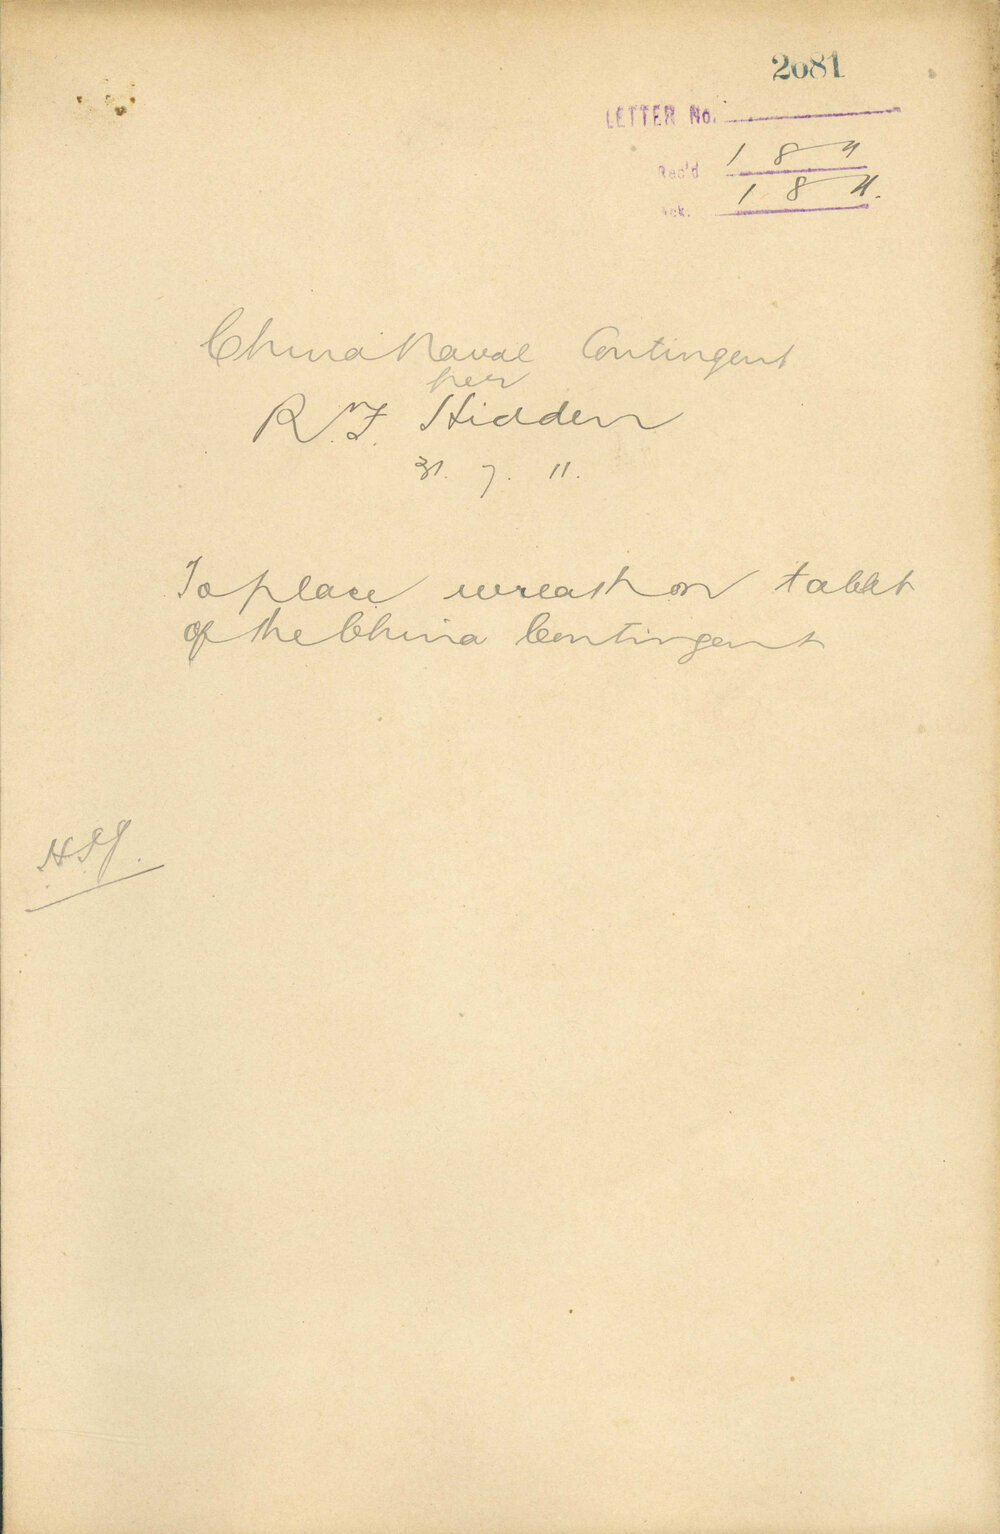 2081
LETTER No.
Rec'd 1 8 11
Ack. 1 8 11.
China Naval Contingent
per
R. F. Hidden
31. 7. 11.
To place wreath on tablet
of the China Contingent